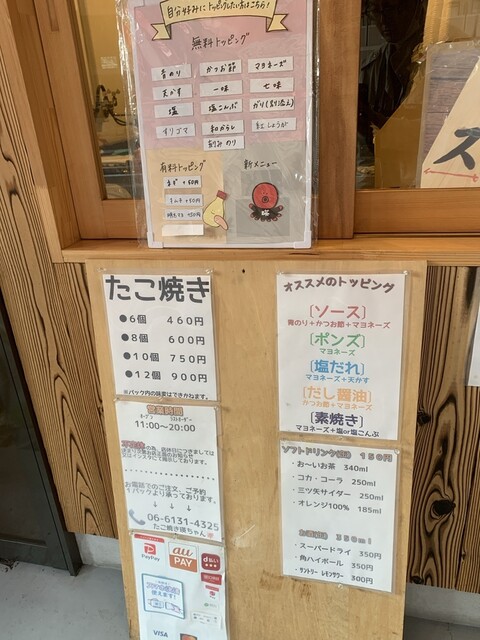 自分好みにトッピングしたい方はこちら!
無料トッピング
青のり かつお節 マヨネーズ
天かす 一味 七味
塩 塩こんぶ ガリ(刻み)
すりゴマ 和からし 紅しょうが
刻みのり
有料トッピング 新メニュー
ネギ +50円
キムチ +50円
+50円
たこ焼き
●6個 460円
●8個 600円
●10個 750円
●12個 900円
※パック内の味変はできかねます。
営業時間
オープン ラストオーダー
11:00~20:00
お電話でのご注文、ご予約
1パックより承っております。
06-6131-4325
たこ焼き瑛ちゃん
PayPay
au PAY
d払い
スマホ決済
使えます!
VISA
オススメのトッピング
[ソース]
青のり+かつお節+マヨネーズ
[ポンズ]
マヨネーズ
[塩だれ]
マヨネーズ+天かす
[だし醤油]
かつお節+マヨネーズ
[素焼き]
マヨネーズ+塩or塩こんぶ
ソフトドリンク各種 150円
・お~いお茶 340ml
・コカ・コーラ 250ml
・三ツ矢サイダー 250ml
・オレンジ100% 185ml
お酒各種 350ml
・スーパードライ 350円
・角ハイボール 350円
・サントリー レモンサワー 300円
ス